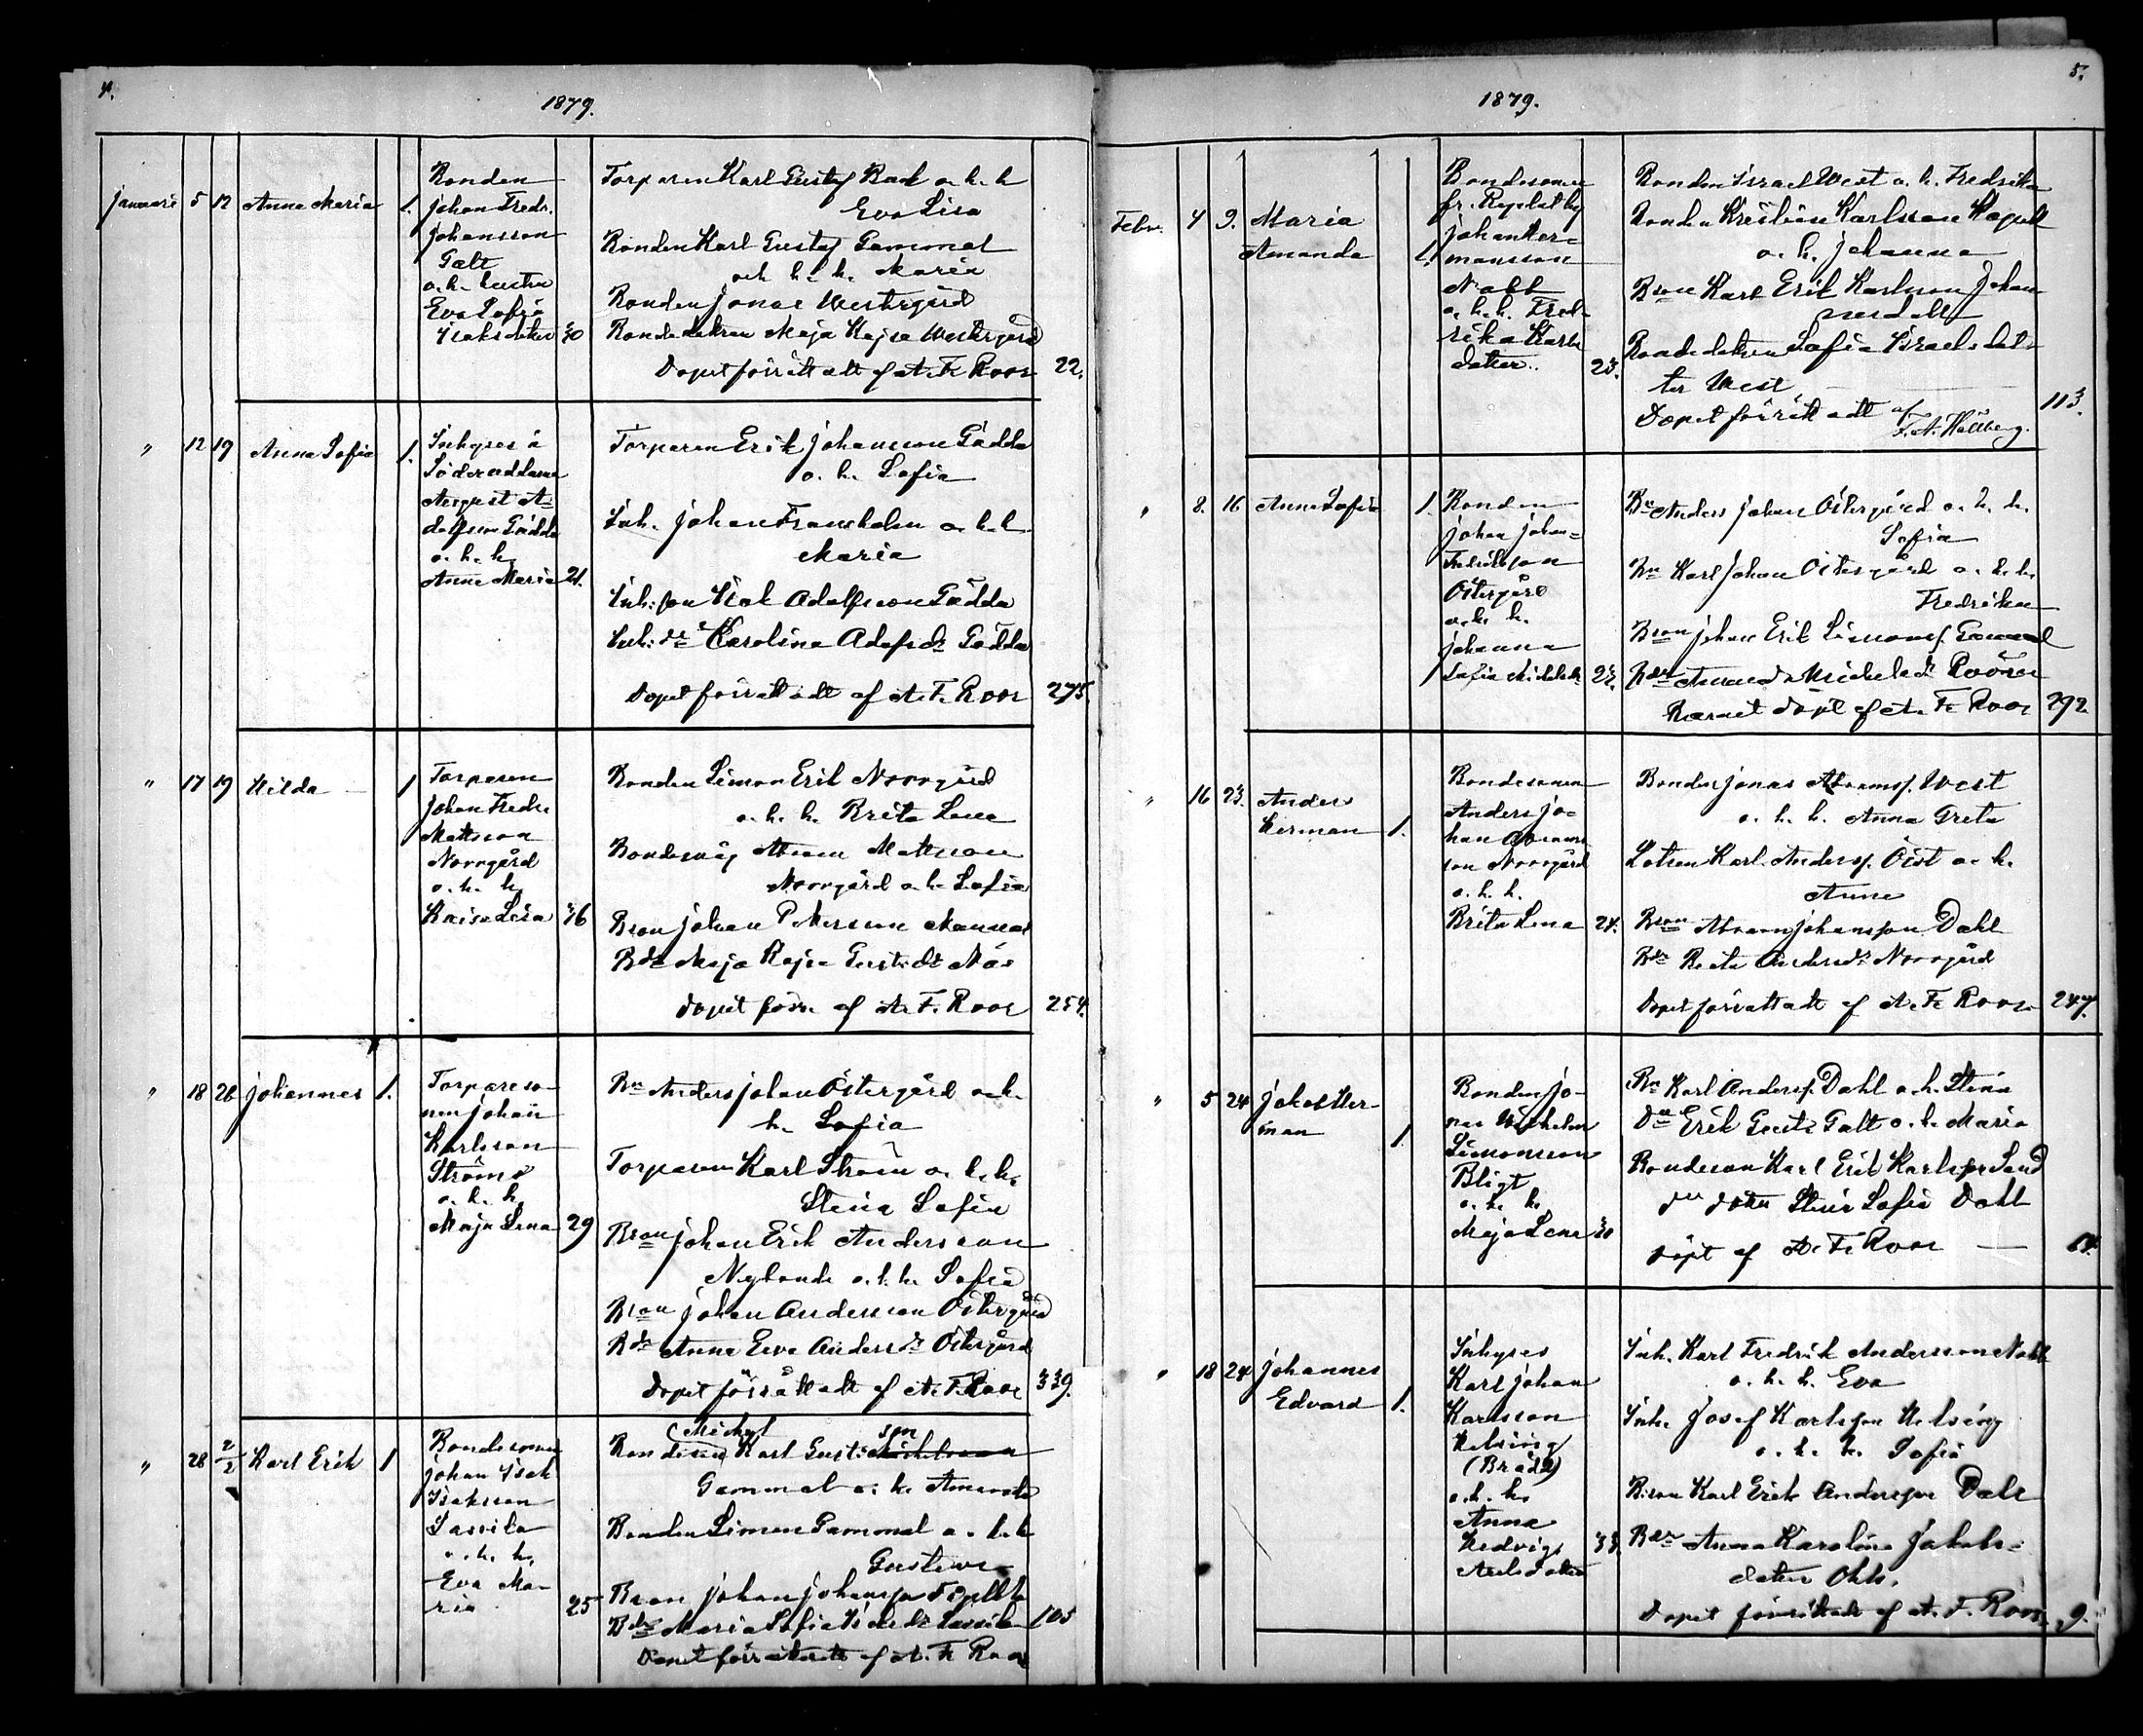 4.
1879.
januari 5 12 Anna Maria 1.
Bonden
Johan Fredr.
Johansson
Galt
o. h. hustru
Eva Sofia
Isaksdotter 30
Torparen Karl Gustaf o. h. h
Eva Lisa
Bonden Karl Gustaf Gammal
och h. h. Maria
Bonden Jonas Westergård
Bondedottren Maja Kajsa Westergård
Dopet förrättadt af A. F. Roos 22.
" 12 19 Anna Sofia 1.
Inhyses å
Söderuddarne
August A-
dolfsson Gädda
o. h. h.
Anna Maria 21.
Torparen Erik Johansson Gädda
o. h. Sofia
Inh. Johan Fransholm o. h. h
Maria
Inh: son Isak Adolfsson Gädda
Inh: dr Karolina Adolfsdr Gädda
Dopet förrättadt af A. F. Roos 275.
" 17 19 Hilda 1
Torparen
Johan Fredr.
Mattsson
Norrgård
o. h. h.
Kaisa Lisa 36
Bonden Simon Erik Norrgård
o. h. h. Brita Lena
Bondemåg Mattsson
Norrgård o. h. Sofia
Bson Johan Pettersson
Bdr Maja Kajsa Gustdr Näs
Dopet förr. af A. F. Roos 254.
" 18 26 Johannes 1.
Torpareso-
nen Johan
Karlsson
Ström
o. h. h.
Maja Lena 29
Bn Anders Johan Östergård o. h.
h. Sofia
Torparen Karl Ström o. h. h.
Stina Sofia
Bson Johan Erik Andersson
Nylund o. h. h. Sofia
Bson Johan Andersson Östergård
Bdr Anna Eva Andersdr Östergård
Dopet förrättadt af A. F. Roos 339.
" 28 2/2 Karl Erik 1
Bondesonen
Johan Isak
Isaksson
Sassila
o. h. h.
Eva Ma-
ria 25
Michel
Karl Gust. son
Gammal o. h. Amanda
Bonden Simon Gammal o. h. h
Gustava
Bson Johan Johansson
Bdr Maria Sofia Isaksdr Sassila 105
Dopet förrättadt af A. F. Roos
5.
1879.
Febr. 4 9. Maria
Amanda 1.
Bondesonen
fr. Replotby
Johan Her-
mansson
Nabb
o. h. h. Fred-
rika Karls
dotter. 23.
Bonden Israel West o. h. Fredrika
Bonden Kristian Karlsson Kapell
o. h. Johanna
Bson Karl Erik Karlsson Johan-
nesdahl
Bondedottern Sofia Israelsdot-
ter West
Dopet förrättadt af
F. A. Hällberg. 113.
" 8. 16 Anna Sofia 1.
Bonden
Johan Johan-
Fredriksson
Östergård
o. h. h.
Johanna
Sofia Mickelsdr 23.
Bn Anders Johan Östergård o. h. h.
Sofia
Bn Karl Johan Östergård o. h. h.
Fredrika
Bson Johan Erik Simonss. Gammal
Bdr Amanda Mickelsdr
Barnet döpt af A. F. Roos 292
" 16 23. Anders
Herman 1.
Bondesonen
Anders Jo-
han Abrams-
son Norrgård
o. h. h.
Brita Lena 24.
Bonden Jonas Abramss. West
o. h. h. Anna Greta
Lotsen Karl Anderss. Öist o. h.
Anna
Bson Abram Johansson Dahl
Bdr Brita Andersdr Norrgård
Dopet förrättadt af A. F. Roos 247.
" 5 24 Jakob Her-
man 1.
Bonden Jo-
nas Wilhelm
Simonsson
Bligt
o. h. h.
Maja Lena 30
Bn Karl Anderss. Dahl o. h. Stina
Dn Erik Gust. Galt o. h. Maria
Bondeson Karl Erik Karlsson Sand
dn dottr Stina Sofia Dahl
Döpt af A. F. Roos 64.
" 18 24 Johannes
Edvard 1.
Inhyses
Karl Johan
Karlsson
Helsing
(Brädd)
o. h. h.
Anna
Hedvig
Axelsdotter 33.
Inh. Karl Fredrik Andersson Nabb
o. h. h. Eva
Inh. Josef Karlsson Helsing
o. h. h. Sofia
Bson Karl Erik Andersson Dahl
Bdr Anna Karolina Jakobs-
dotter Ohls.
Dopet förrättadt af A. F. Roos. 9.